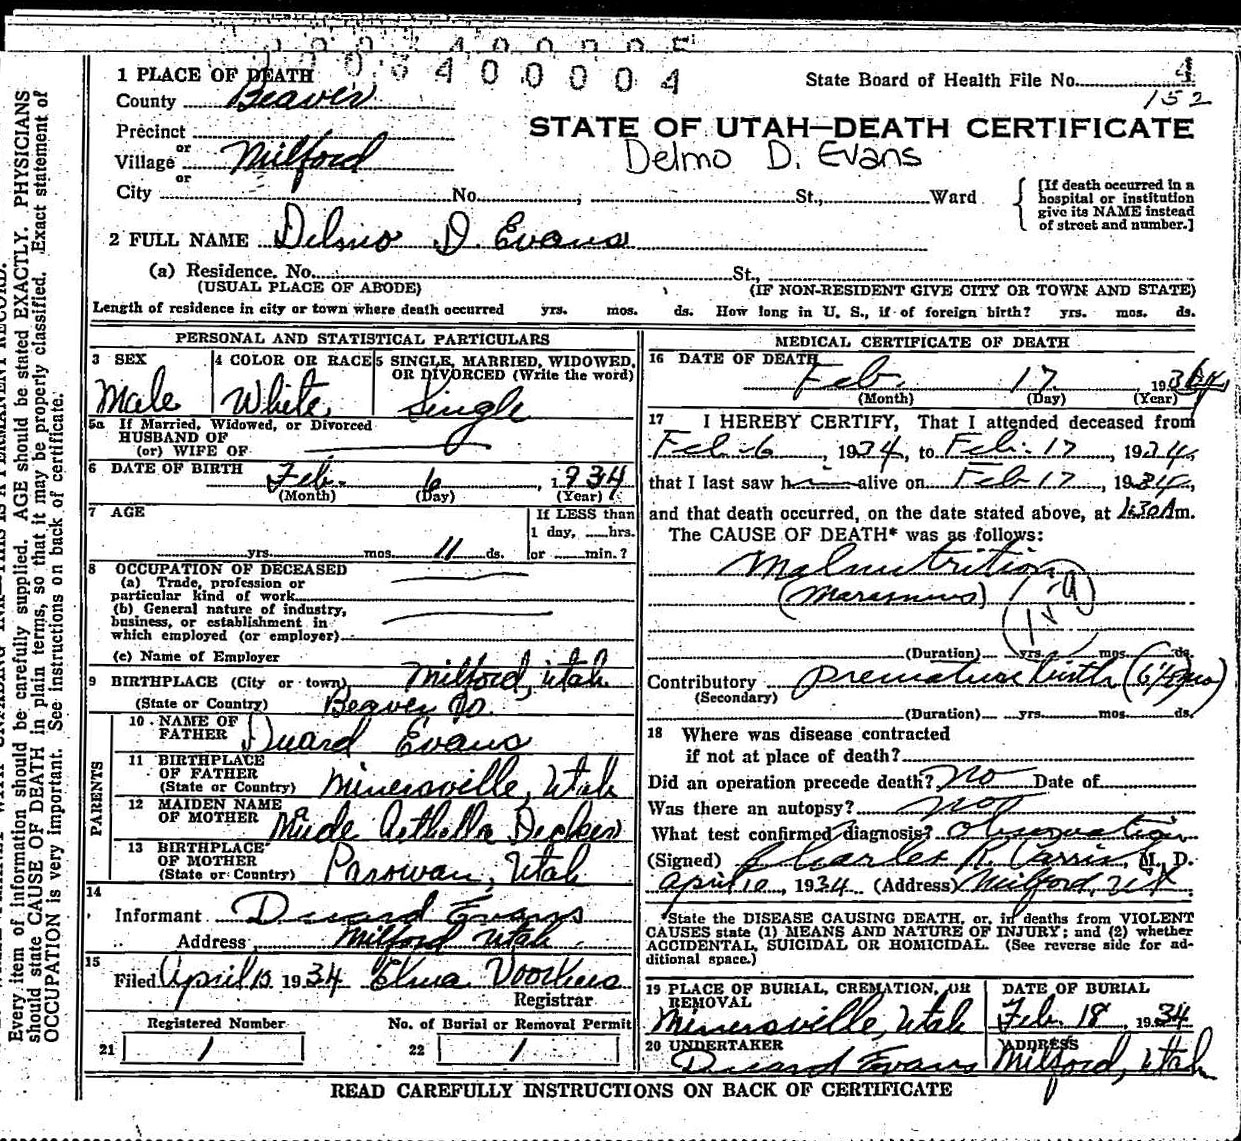 003400004
1 PLACE OF DEATH
State Board of Health File No. 4
152
County Beaver
Precinct
or
Village Milford
or
City No. , St., Ward
STATE OF UTAH—DEATH CERTIFICATE
Delmo D. Evans
[If death occurred in a
hospital or institution
give its NAME instead
of street and number.]
2 FULL NAME Delmo D. Evans
(a) Residence. No. St.,
(USUAL PLACE OF ABODE) (IF NON-RESIDENT GIVE CITY OR TOWN AND STATE)
Length of residence in city or town where death occurred yrs. mos. ds. How long in U. S., if of foreign birth? yrs. mos. ds.
PERSONAL AND STATISTICAL PARTICULARS
3 SEX
Male
4 COLOR OR RACE
White
5 SINGLE, MARRIED, WIDOWED,
OR DIVORCED (Write the word)
Single
5a If Married, Widowed, or Divorced
HUSBAND OF
(or) WIFE OF
6 DATE OF BIRTH Feb. 6, 1934
(Month) (Day) (Year)
7 AGE
yrs. mos. 11 ds.
If LESS than
1 day, hrs.
or min.?
8 OCCUPATION OF DECEASED
(a) Trade, profession or
particular kind of work
(b) General nature of industry,
business, or establishment in
which employed (or employer)
(c) Name of Employer
9 BIRTHPLACE (City or town) Milford, Utah
(State or Country) Beaver Co.
PARENTS
10 NAME OF
FATHER Duard Evans
11 BIRTHPLACE
OF FATHER
(State or Country) Minersville, Utah
12 MAIDEN NAME
OF MOTHER
13 BIRTHPLACE
OF MOTHER
(State or Country) Parowan, Utah
14
Informant Duard Evans
Address Milford Utah
15
Filed April 13 1934 Elma Voorhees
Registrar
Registered Number
21 1
No. of Burial or Removal Permit
22 1
MEDICAL CERTIFICATE OF DEATH
16 DATE OF DEATH
Feb. 17, 1934
(Month) (Day) (Year)
17 I HEREBY CERTIFY, That I attended deceased from
Feb. 6, 1934, to Feb. 17, 1934,
that I last saw him alive on Feb 17, 1934,
and that death occurred, on the date stated above, at 1:30 A m.
The CAUSE OF DEATH* was as follows:
Malnutrition
(Marasmus)
(Duration) yrs. mos. ds.
Contributory premature birth (6 1/2 mo)
(Secondary)
(Duration) yrs. mos. ds.
18 Where was disease contracted
if not at place of death?
Did an operation precede death? no Date of
Was there an autopsy? no
What test confirmed diagnosis? observation
(Signed) Charles R. Parrish, M. D.
April 10, 1934 (Address) Milford, Ut
*State the DISEASE CAUSING DEATH, or, in deaths from VIOLENT
CAUSES state (1) MEANS AND NATURE OF INJURY; and (2) whether
ACCIDENTAL, SUICIDAL OR HOMICIDAL. (See reverse side for ad-
ditional space.)
19 PLACE OF BURIAL, CREMATION, OR
REMOVAL
Minersville, Utah
DATE OF BURIAL
Feb. 18, 1934
20 UNDERTAKER
Duard Evans
ADDRESS
Milford, Utah
READ CAREFULLY INSTRUCTIONS ON BACK OF CERTIFICATE
Every item of information should be carefully supplied. AGE should be stated EXACTLY. PHYSICIANS
should state CAUSE OF DEATH in plain terms, so that it may be properly classified. Exact statement of
OCCUPATION is very important. See instructions on back of certificate.